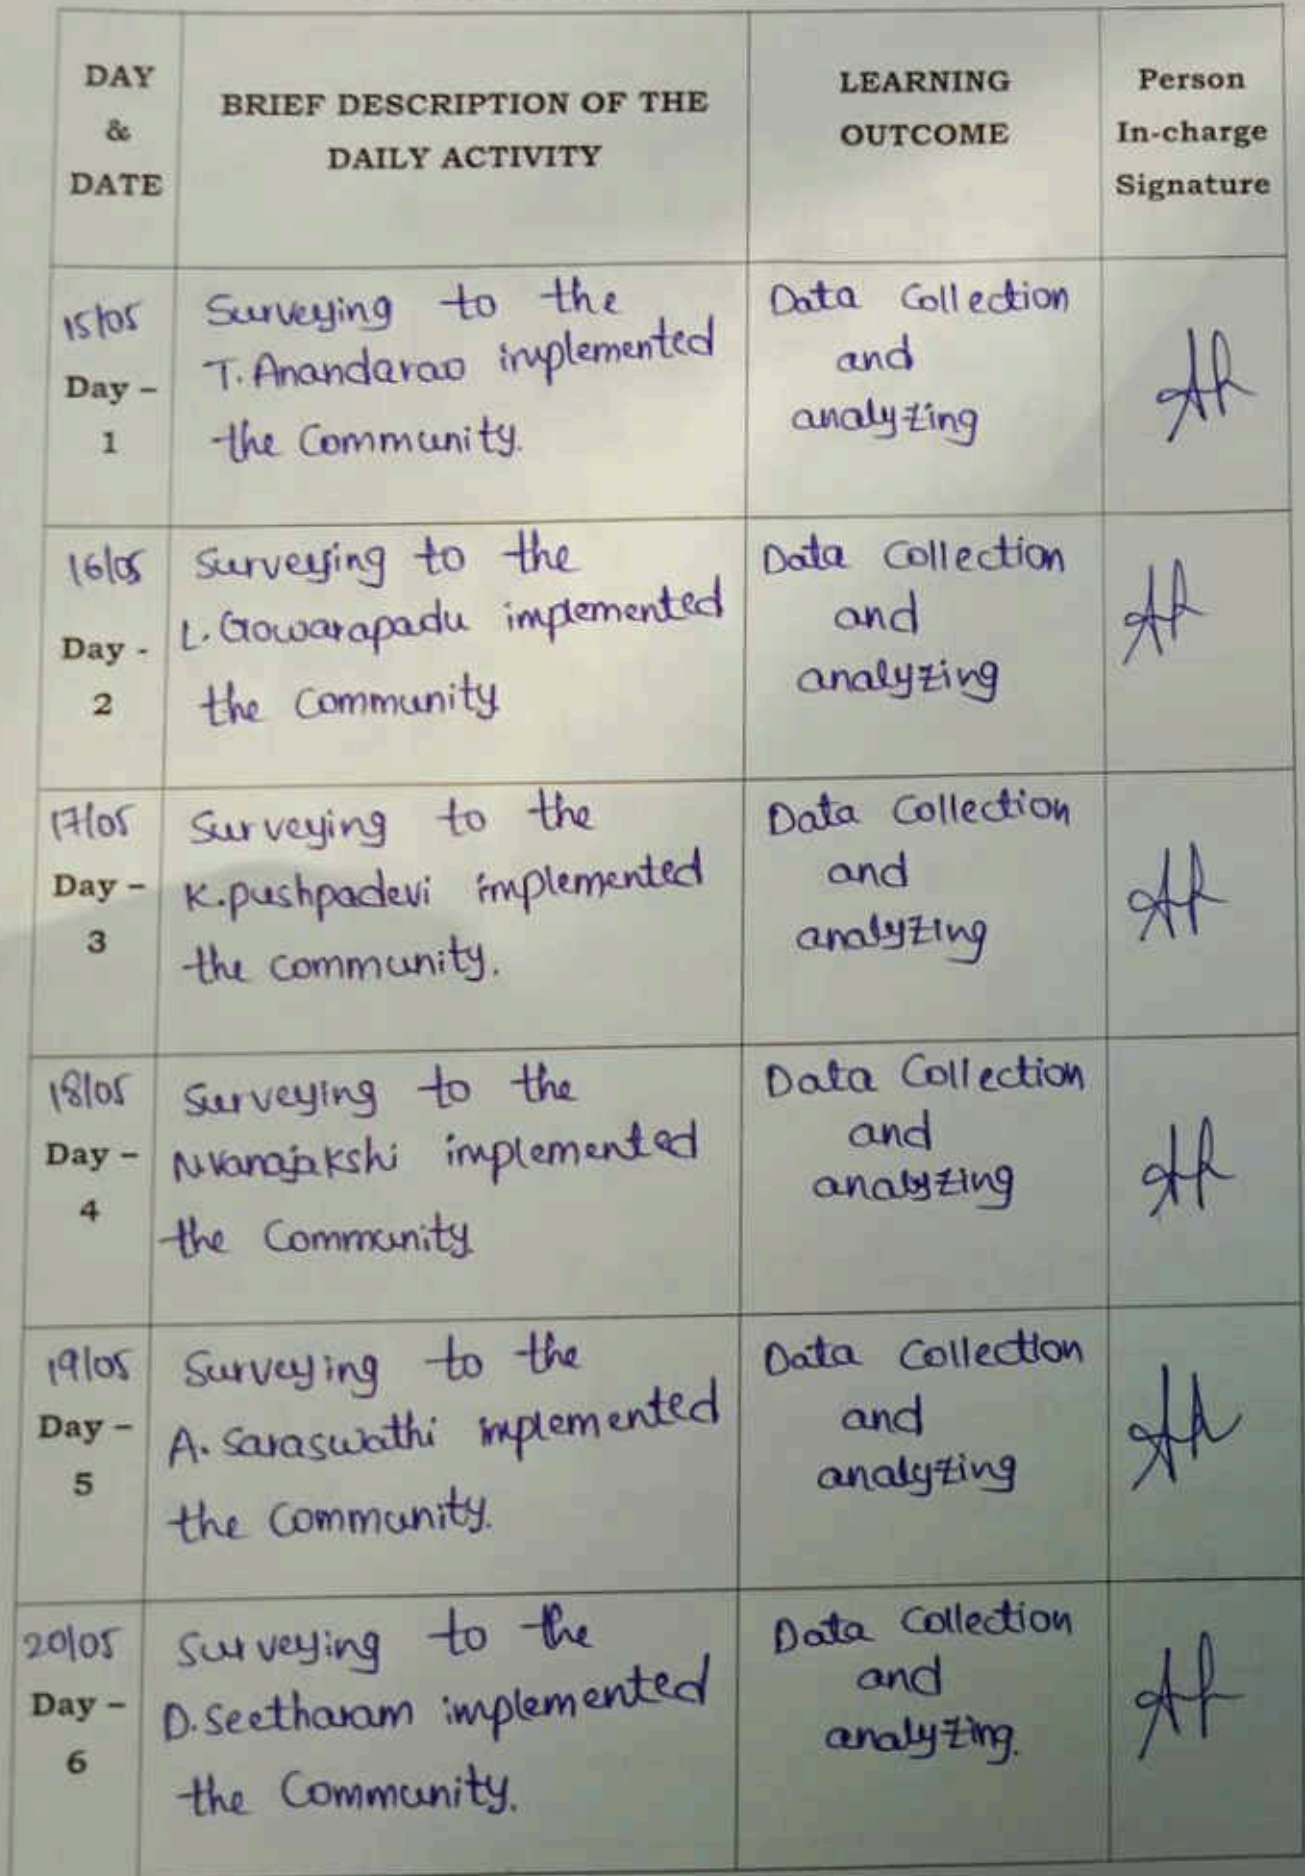 DAY
&
DATE
BRIEF DESCRIPTION OF THE
DAILY ACTIVITY
LEARNING
OUTCOME
Person
In-charge
Signature
15/05
Day –
1
Surveying to the
T. Anandarao implemented
the Community.
Data Collection
and
analyzing
16/05
Day -
2
Surveying to the
L. Gowarapadu implemented
the Community
Data Collection
and
analyzing
17/05
Day –
3
Surveying to the
K. pushpadevi implemented
the community.
Data Collection
and
analyzing
18/05
Day –
4
Surveying to the
N. Vanajakshi implemented
the Community
Data Collection
and
analyzing
19/05
Day –
5
Surveying to the
A. Saraswathi implemented
the Community.
Data Collection
and
analyzing
20/05
Day –
6
Surveying to the
D. Seetharam implemented
the Community.
Data Collection
and
analyzing.